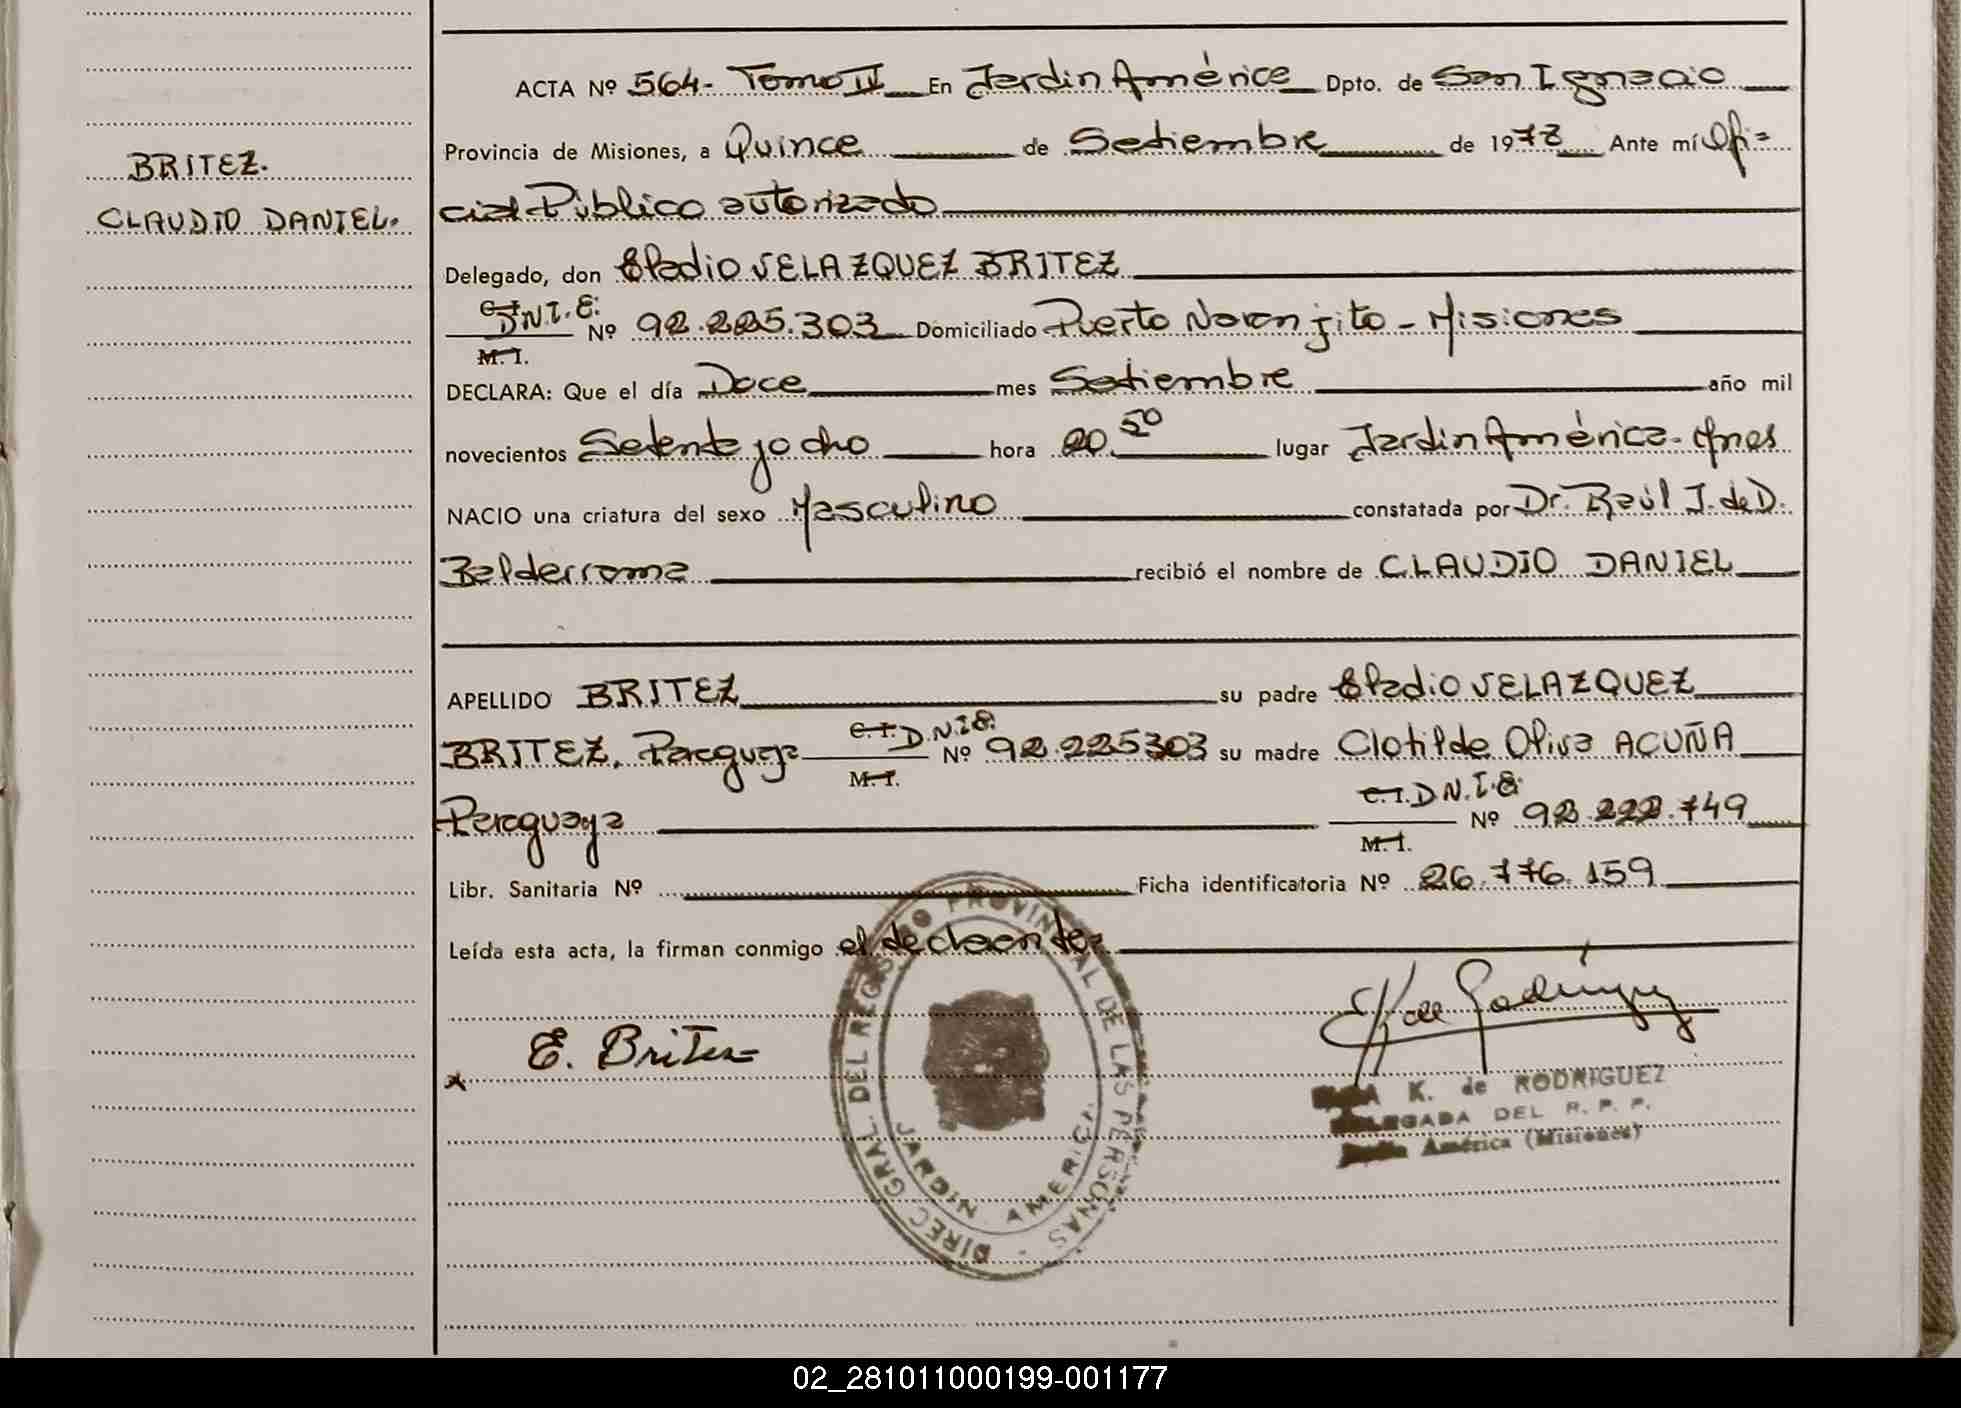 BRITEZ.
CLAUDIO DANIEL.
ACTA Nº 564- Tomo II En Jardín América Dpto. de San Ignacio
Provincia de Misiones, a Quince de Setiembre de 1978 Ante mí Ofi=
cial Público autorizado
Delegado, don Eladio VELAZQUEZ BRITEZ
C.I. D.N.I.E. M.I. Nº 92.225.303 Domiciliado Puerto Naranjito - Misiones
DECLARA: Que el día Doce mes Setiembre año mil
novecientos Setenta y ocho hora 20.50 lugar Jardín América - Mnes
NACIO una criatura del sexo Masculino constatada por Dr. Raúl J. de D.
Balderrama recibió el nombre de CLAUDIO DANIEL
APELLIDO BRITEZ su padre Eladio VELAZQUEZ
BRITEZ, Paraguaya C.I. D.N.I.E. M.I. Nº 92.225303 su madre Clotilde Oliva ACUÑA
Paraguaya C.I. D.N.I.E. M.I. Nº 92.222.749
Libr. Sanitaria Nº Ficha identificatoria Nº 26.776.159
Leída esta acta, la firman conmigo el declarante
E. Britez
DIREC. GRAL. DEL REGISTRO PROVINCIAL DE LAS PERSONAS -
JARDIN AMERICA
K. de Rodríguez
K. de RODRIGUEZ
DELEGADA DEL R. P. P.
Jardín América (Misiones)
02_281011000199-001177